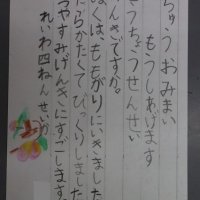 ちゅうおみまい
もうしあげます
ちょうせんせい
んきですか。
くは、ももがりにいきました
たらかたくてびっくりしました
つやすみげんきにすごします。
れいわ四ねんせいか